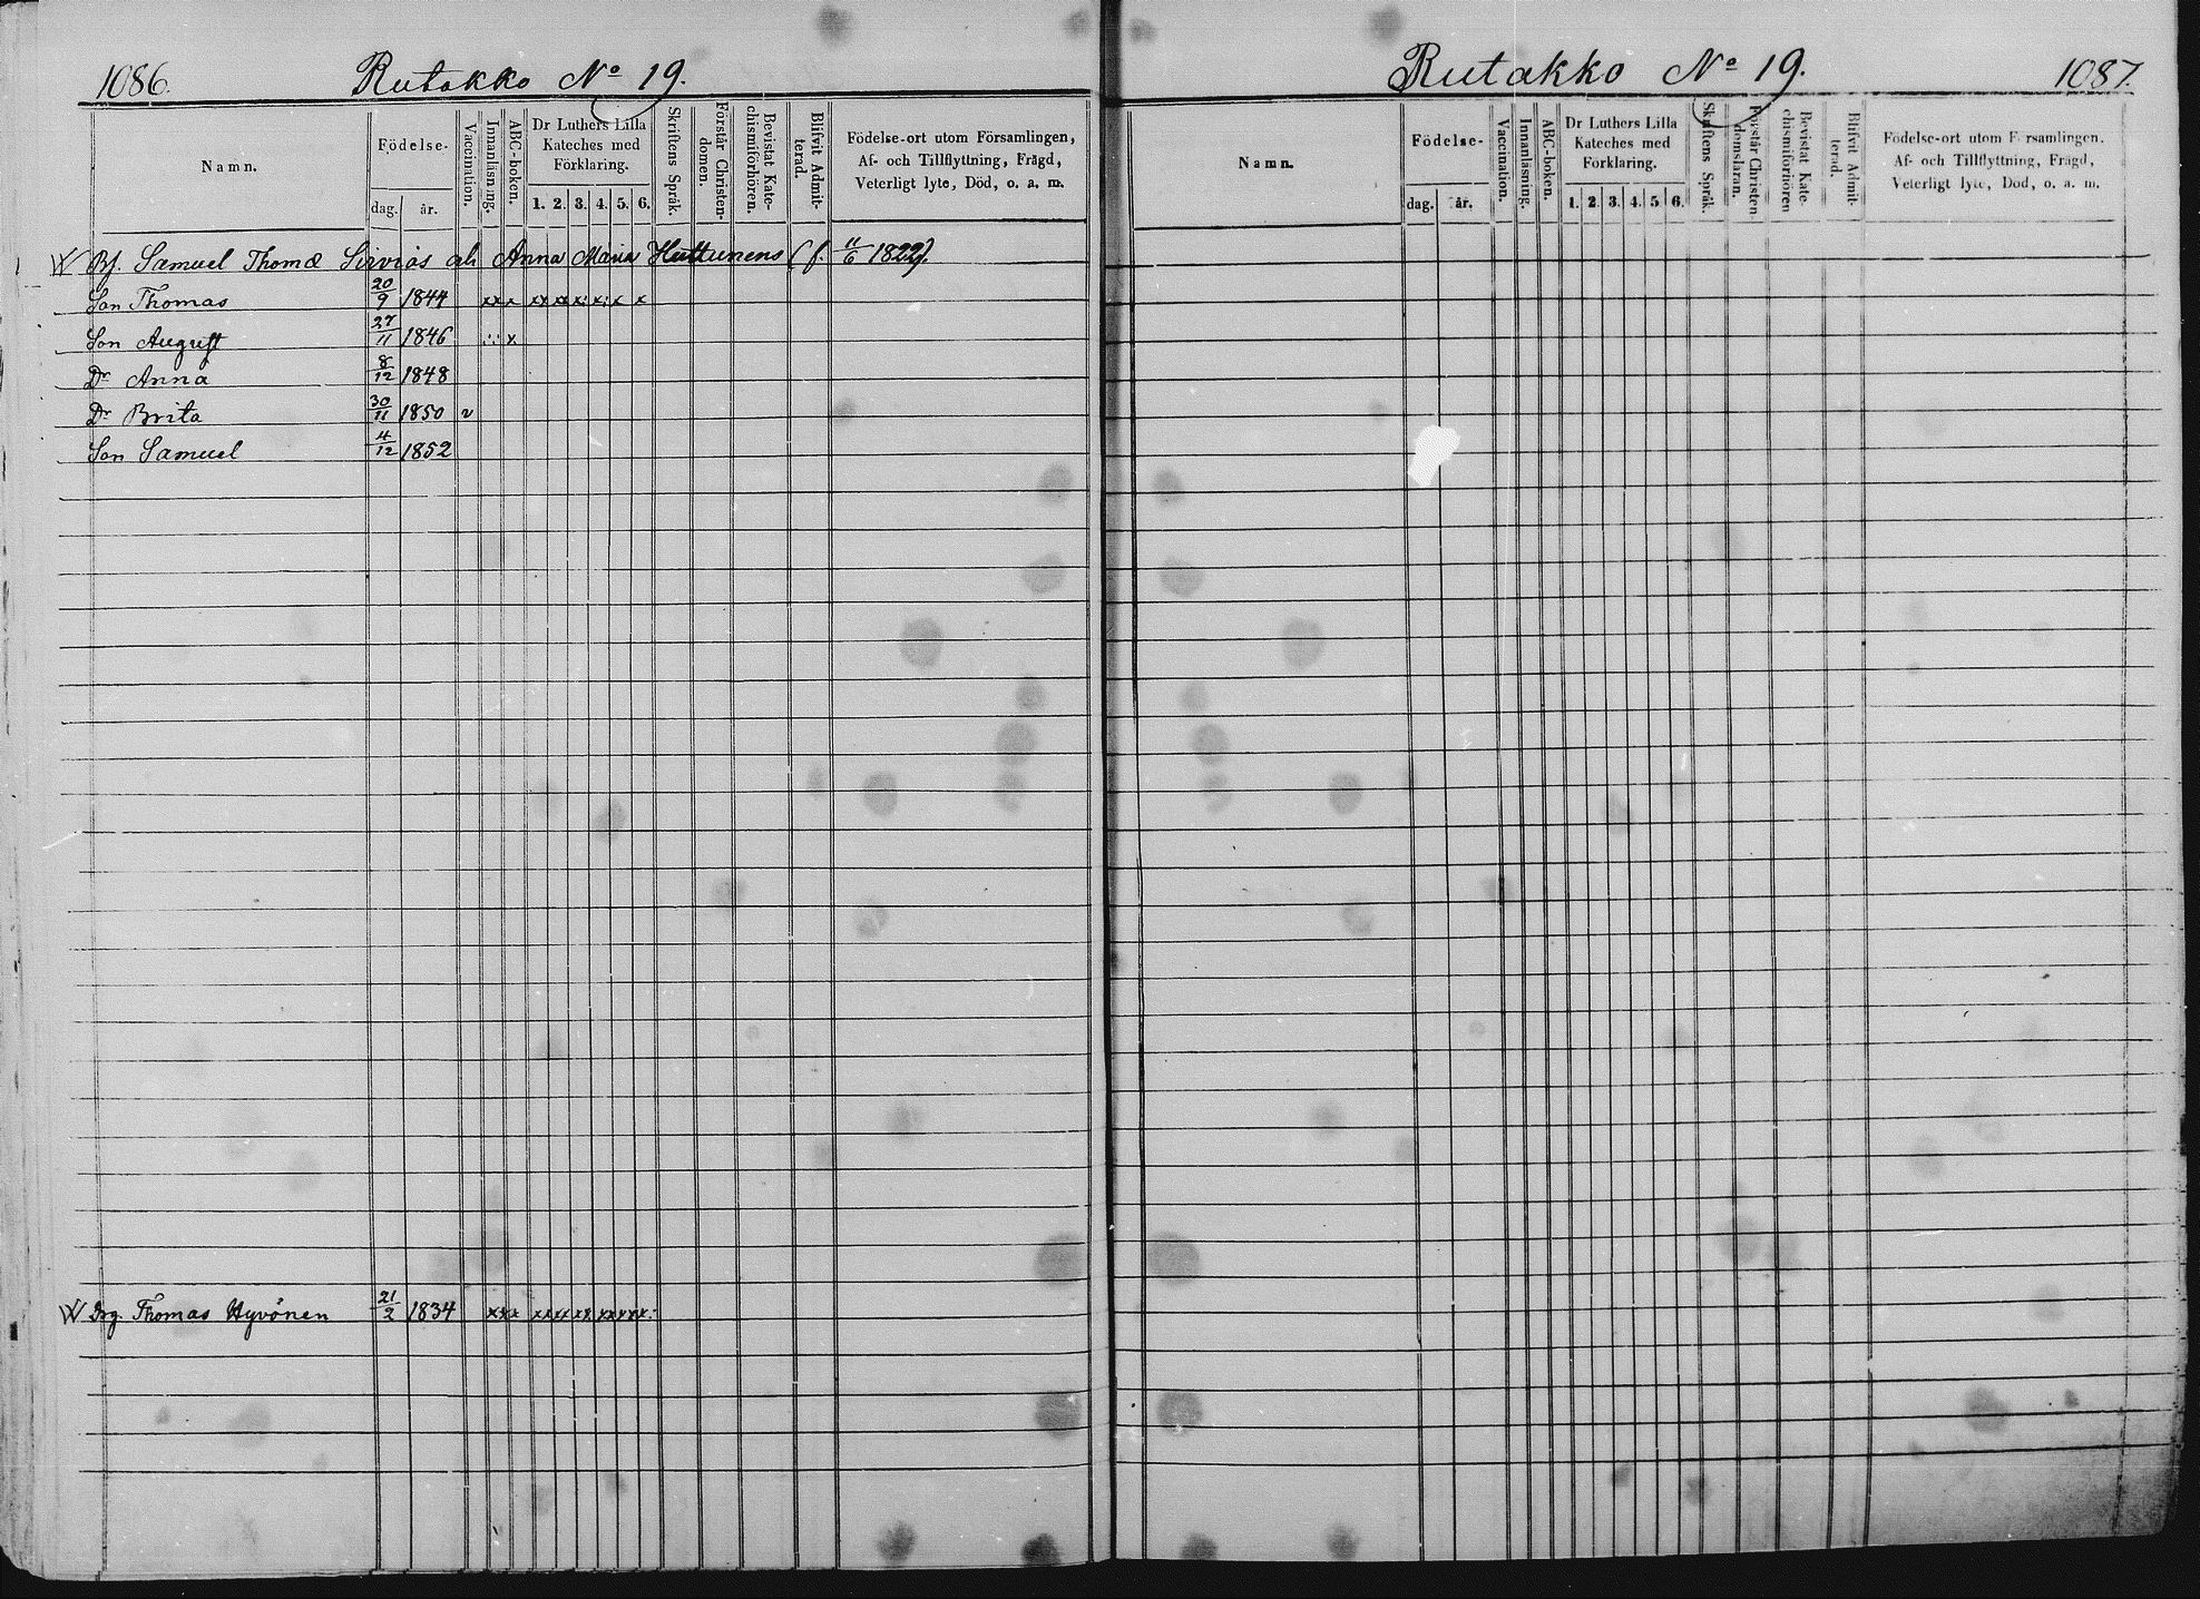 1086.
Rutakko No 19.
Namn.
Födelse-
dag. år.
Vaccination.
Innanläsning.
ABC-boken.
Dr Luthers Lilla
Kateches med
Förklaring.
1. 2. 3. 4. 5. 6.
Skriftens Språk.
Förstår Christen-
domen.
Bevistat Kate-
chismiförhören.
Blifvit Admit-
terad.
Födelse-ort utom Församlingen,
Af- och Tillflyttning, Frägd,
Veterligt lyte, Död, o. a. m.
Samuel Thomæ Sirviös och Anna Maria Huttunens (f. 11/6 1822).
Son Thomas 20/9 1844 xx x xx xx x: x: x x
Son August 27/11 1846 x
Dr Anna 8/12 1848
Dr Brita 30/11 1850 v
Son Samuel 4/12 1852
Drg. Thomas Hyvönen 21/2 1834
Rutakko No 19.
1087.
Namn.
Födelse-
dag. år.
Vaccination.
Innanläsning.
ABC-boken.
Dr Luthers Lilla
Kateches med
Förklaring.
1. 2. 3. 4. 5 6.
Skriftens Språk.
Förstår Christen-
domsläran.
Bevistat Kate-
chismiförhören
Blifvit Admit-
terad.
Födelse-ort utom Församlingen.
Af- och Tillflyttning, Frägd,
Veterligt lyte, Död, o. a. m.